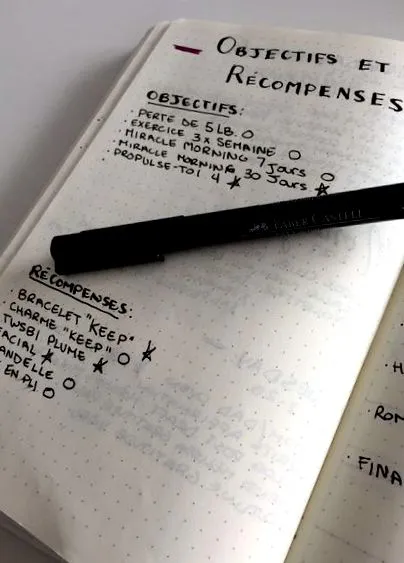 OBJECTIFS ET
RÉCOMPENSES
OBJECTIFS:
· PERTE DE 5 LB.
· EXERCICE 3X SEMAINE
· MIRACLE MORNING 7 JOURS
· MIRACLE MORNING 30 JOURS
· PROPULSE-TOI 4
FABER-CASTELL
RÉCOMPENSES:
BRACELET "KEEP"
CHARME "KEEP"
TWSBI PLUME
ACIAL
ANDELLE
EN PJ
· H
ROM
· FINA